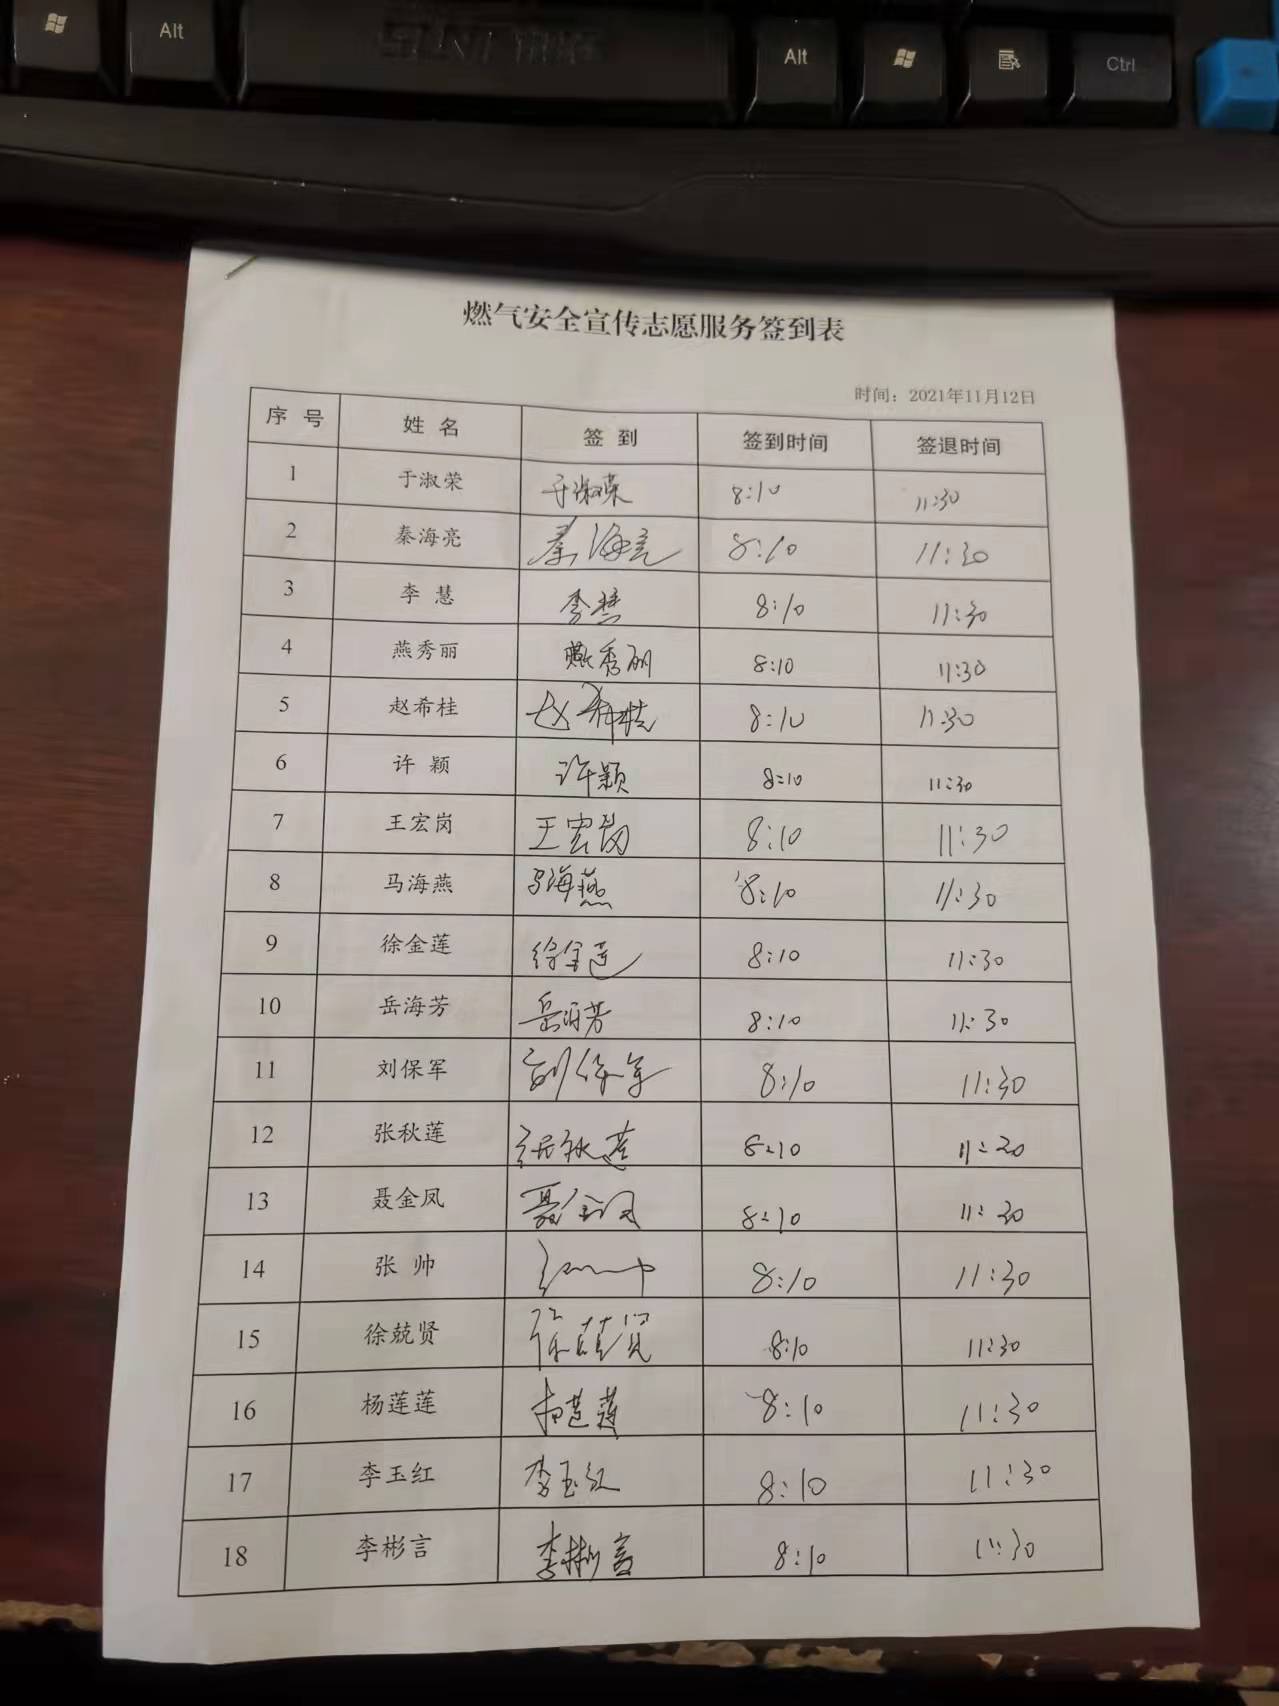 Alt
Alt
Ctrl
燃气安全宣传志愿服务签到表
时间：2021年11月12日
序 号 姓 名 签 到 签到时间 签退时间
1 于淑荣 于淑荣 8:10 11:30
2 秦海亮 秦海亮 8:10 11:30
3 李 慧 李慧 8:10 11:30
4 燕秀丽 燕秀丽 8:10 11:30
5 赵希桂 赵希桂 8:10 11:30
6 许 颖 许颖 8:10 11:30
7 王宏岗 王宏岗 8:10 11:30
8 马海燕 马海燕 8:10 11:30
9 徐金莲 徐金莲 8:10 11:30
10 岳海芳 岳海芳 8:10 11:30
11 刘保军 刘保军 8:10 11:30
12 张秋莲 张秋莲 8:10 11:20
13 聂金凤 聂金凤 8:10 11:30
14 张 帅 张帅 8:10 11:30
15 徐兢贤 徐兢贤 8:10 11:30
16 杨莲莲 杨莲莲 8:10 11:30
17 李玉红 李玉红 8:10 11:30
18 李彬言 李彬言 8:10 11:30